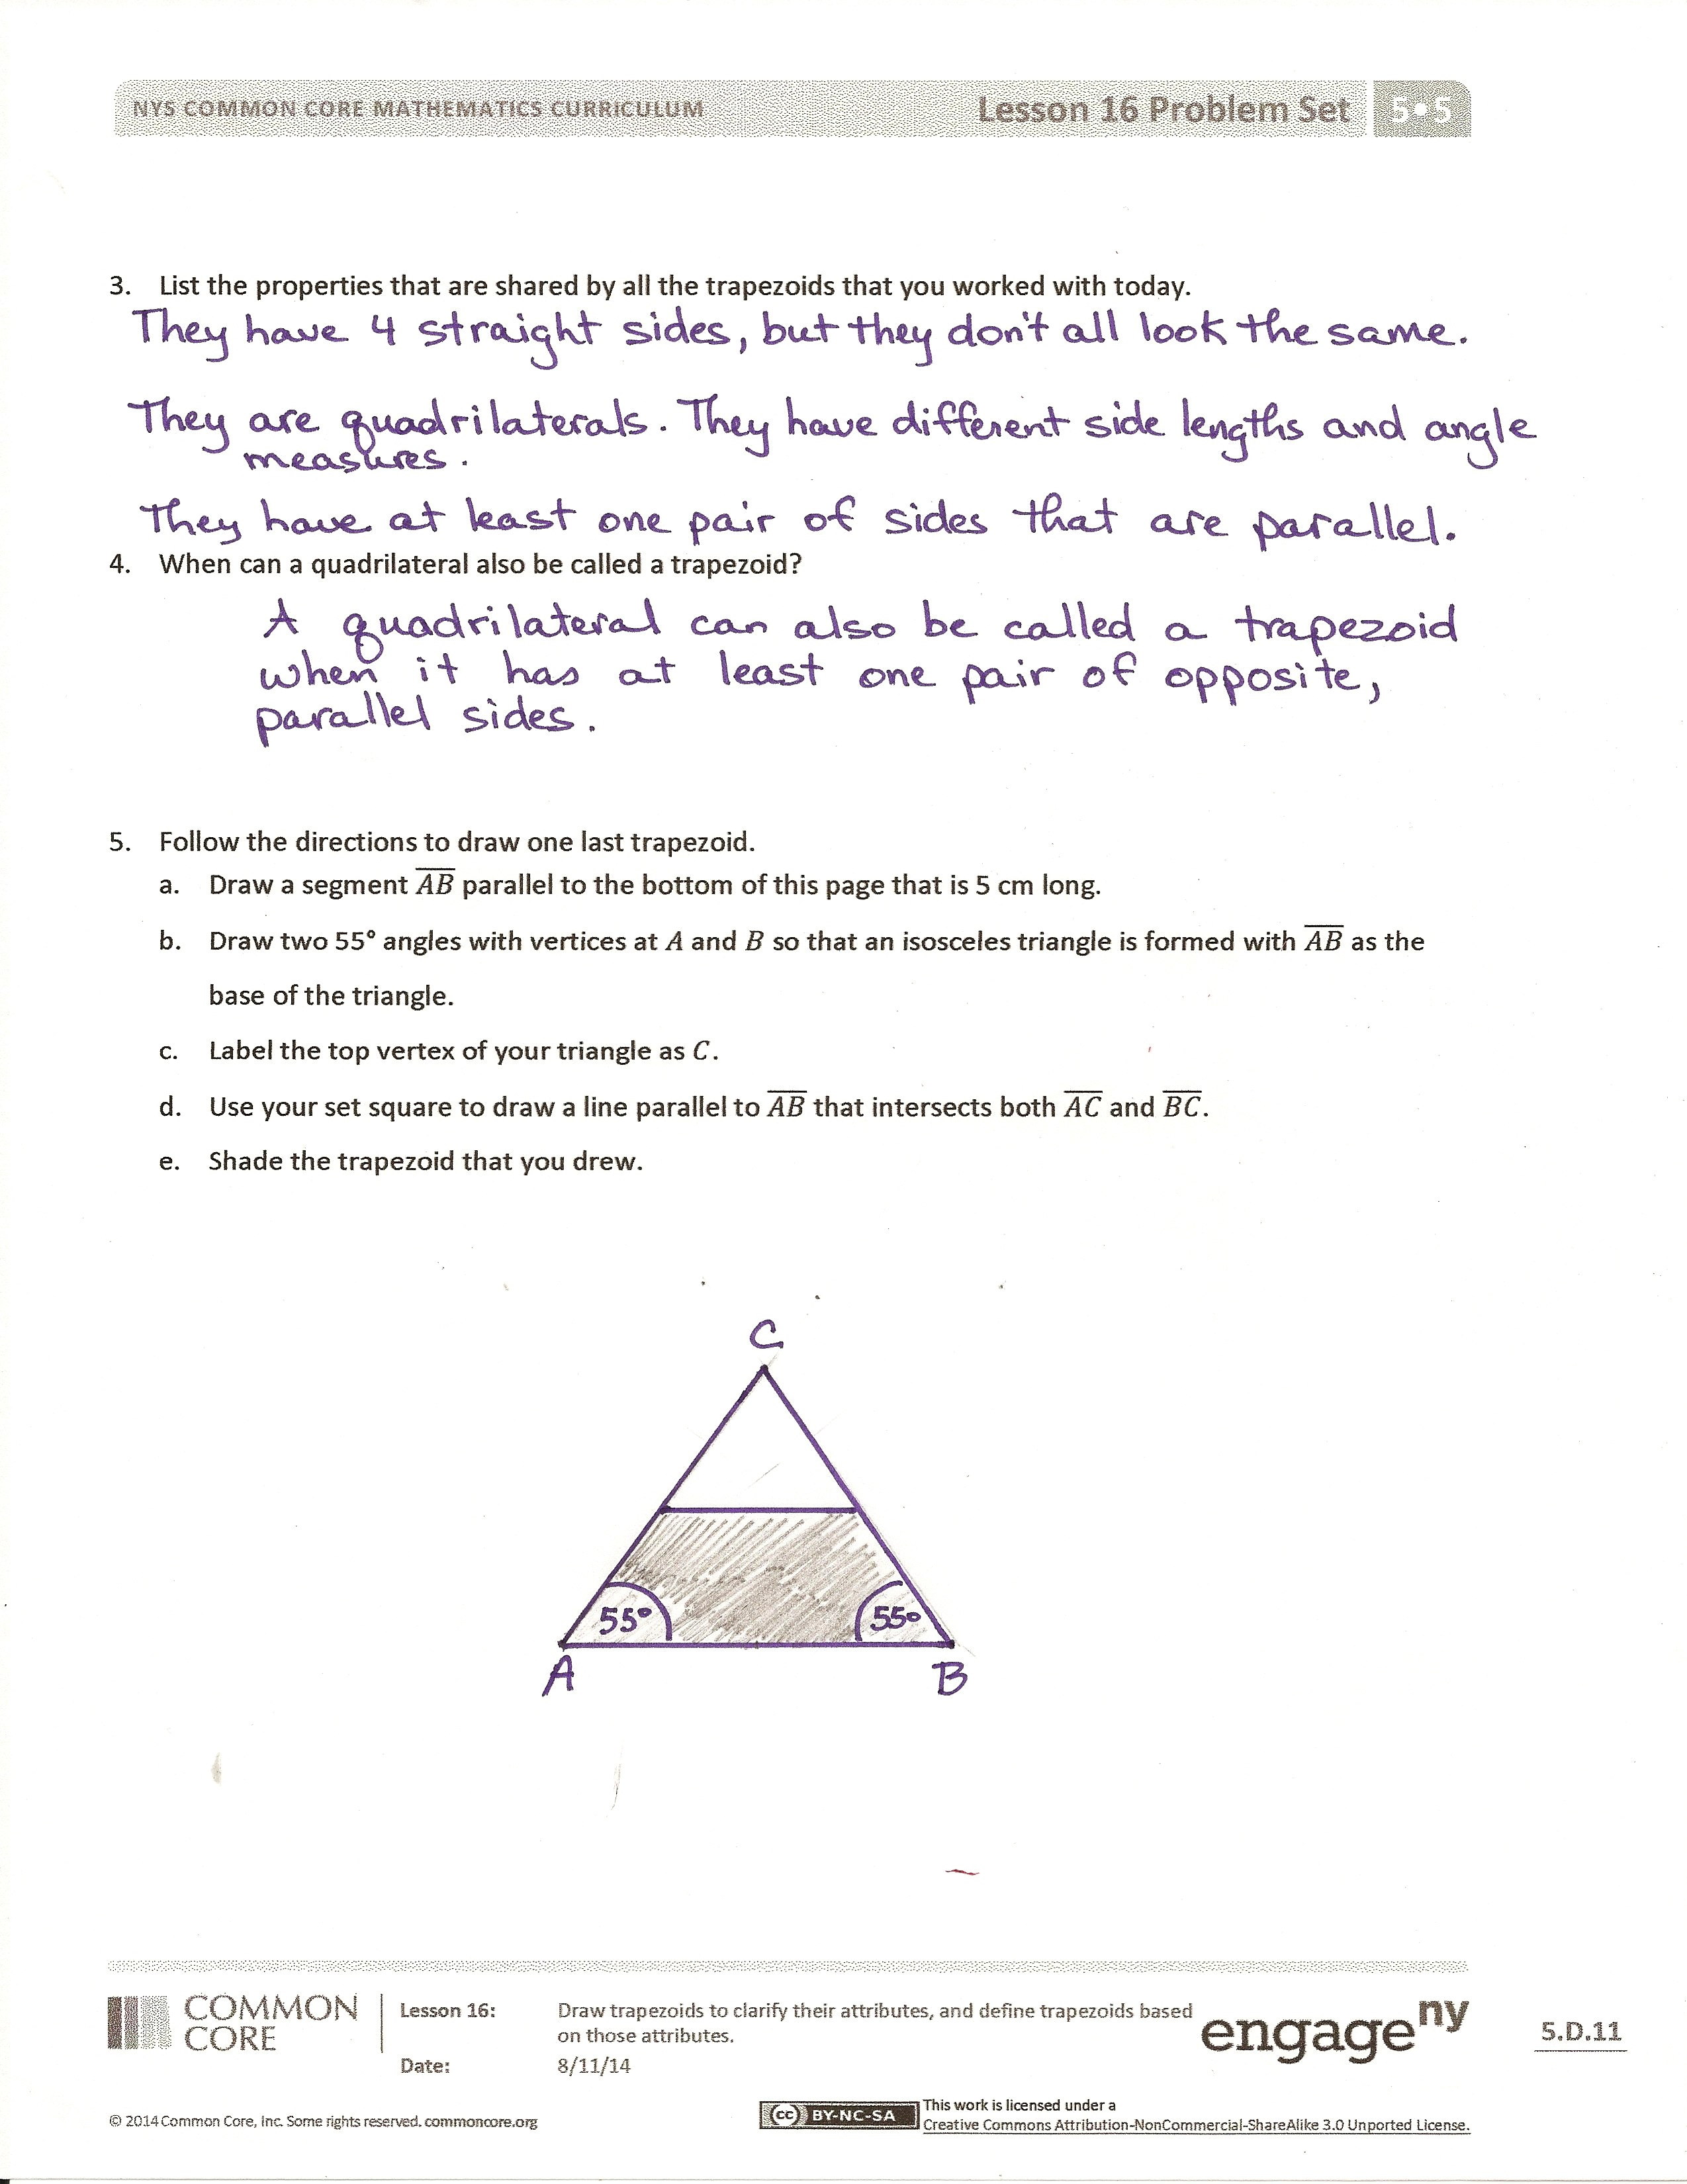 NYS COMMON CORE MATHEMATICS CURRICULUM Lesson 16 Problem Set 5•5
3. List the properties that are shared by all the trapezoids that you worked with today.
They have 4 straight sides, but they don't all look the same.
They are quadrilaterals. They have different side lengths and angle
measures.
They have at least one pair of sides that are parallel.
4. When can a quadrilateral also be called a trapezoid?
A quadrilateral can also be called a trapezoid
when it has at least one pair of opposite,
parallel sides.
5. Follow the directions to draw one last trapezoid.
a. Draw a segment AB parallel to the bottom of this page that is 5 cm long.
b. Draw two 55° angles with vertices at A and B so that an isosceles triangle is formed with AB as the
base of the triangle.
c. Label the top vertex of your triangle as C.
d. Use your set square to draw a line parallel to AB that intersects both AC and BC.
e. Shade the trapezoid that you drew.
C
55° 55°
A B
COMMON
CORE
Lesson 16: Draw trapezoids to clarify their attributes, and define trapezoids based
on those attributes.
Date: 8/11/14
engage ny
5.D.11
© 2014 Common Core, Inc. Some rights reserved. commoncore.org
cc BY-NC-SA
This work is licensed under a
Creative Commons Attribution-NonCommercial-ShareAlike 3.0 Unported License.